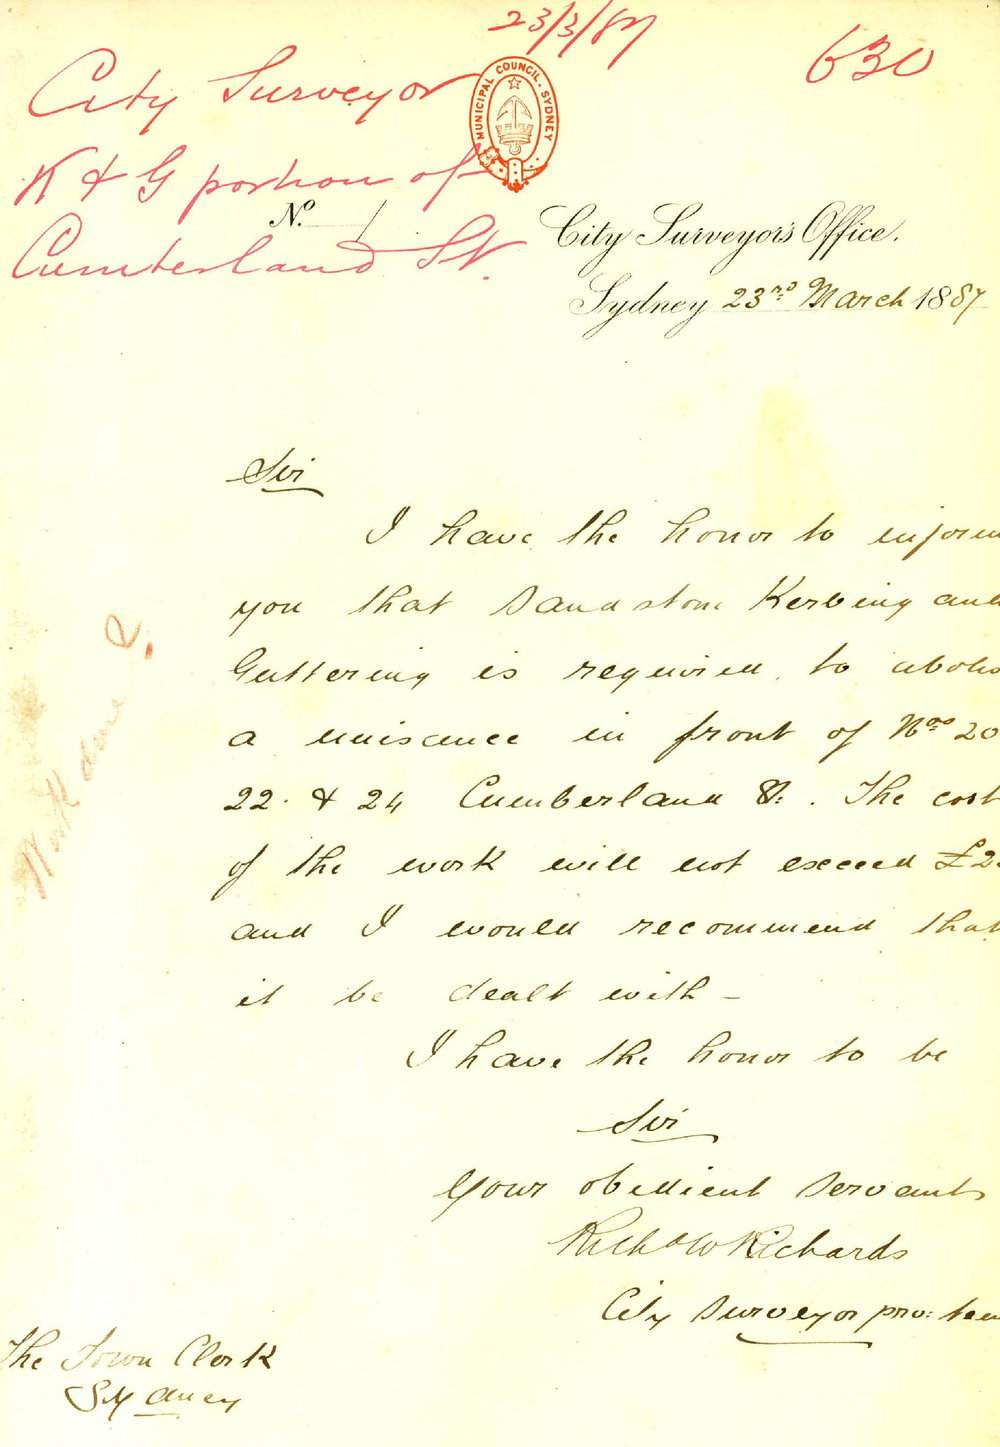 23/3/87
630
City Surveyor
K & G portion of
Cumberland St.
MUNICIPAL COUNCIL. SYDNEY
No.
City Surveyor's Office.
Sydney 23rd March 1887
Sir
I have the honor to inform
you that Sandstone Kerbing and
Guttering is required, to abolis
a nuisance in front of Nos 20
22. & 24 Cumberland St. The cost
of the work will not exceed £2
and I would recommend that
it be dealt with –
I have the honor to be
Sir
Your obedient Servant
Richd W Richards
City Surveyor pro: tem
The Town Clerk
Sydney
Work done